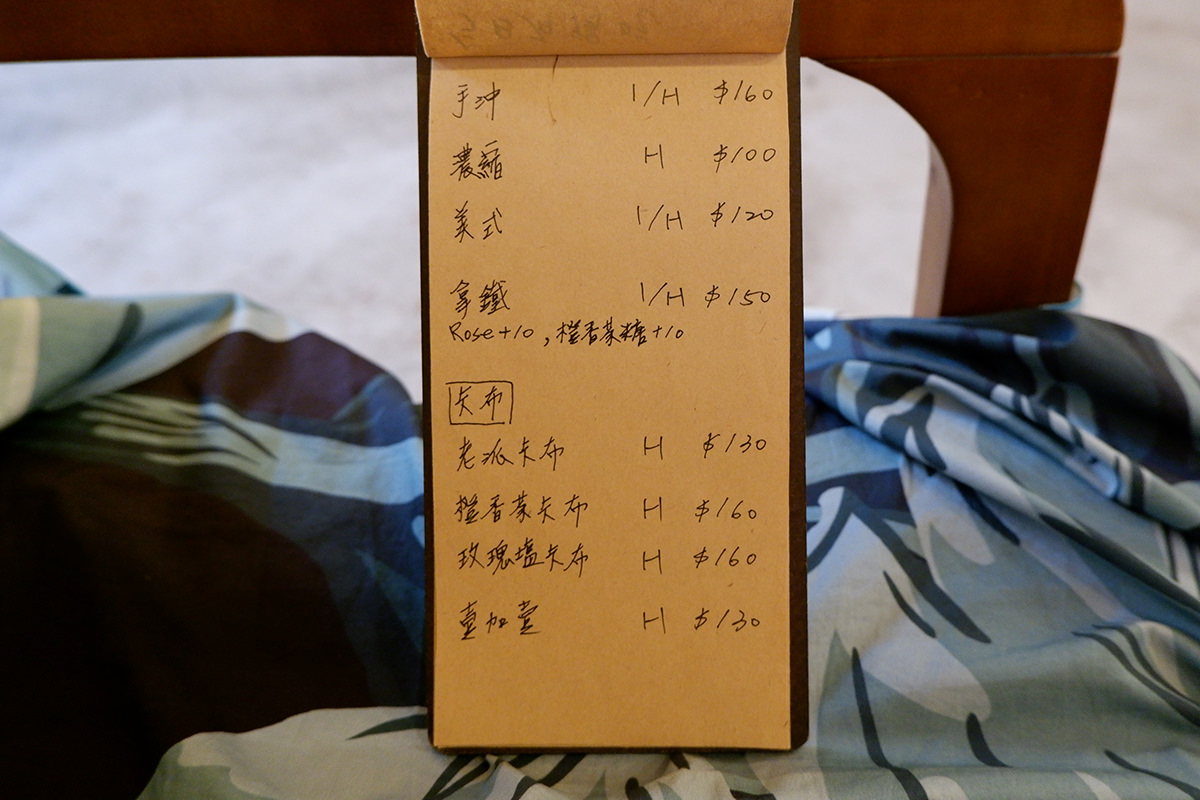 手沖 I/H $160
濃縮 H $100
美式 I/H $120
拿鐵 I/H $150
Rose+10,橙香菓糖+10
卡布
老派卡布 H $130
橙香菓卡布 H $160
玫瑰塩卡布 H $160
壹加壹 H $130